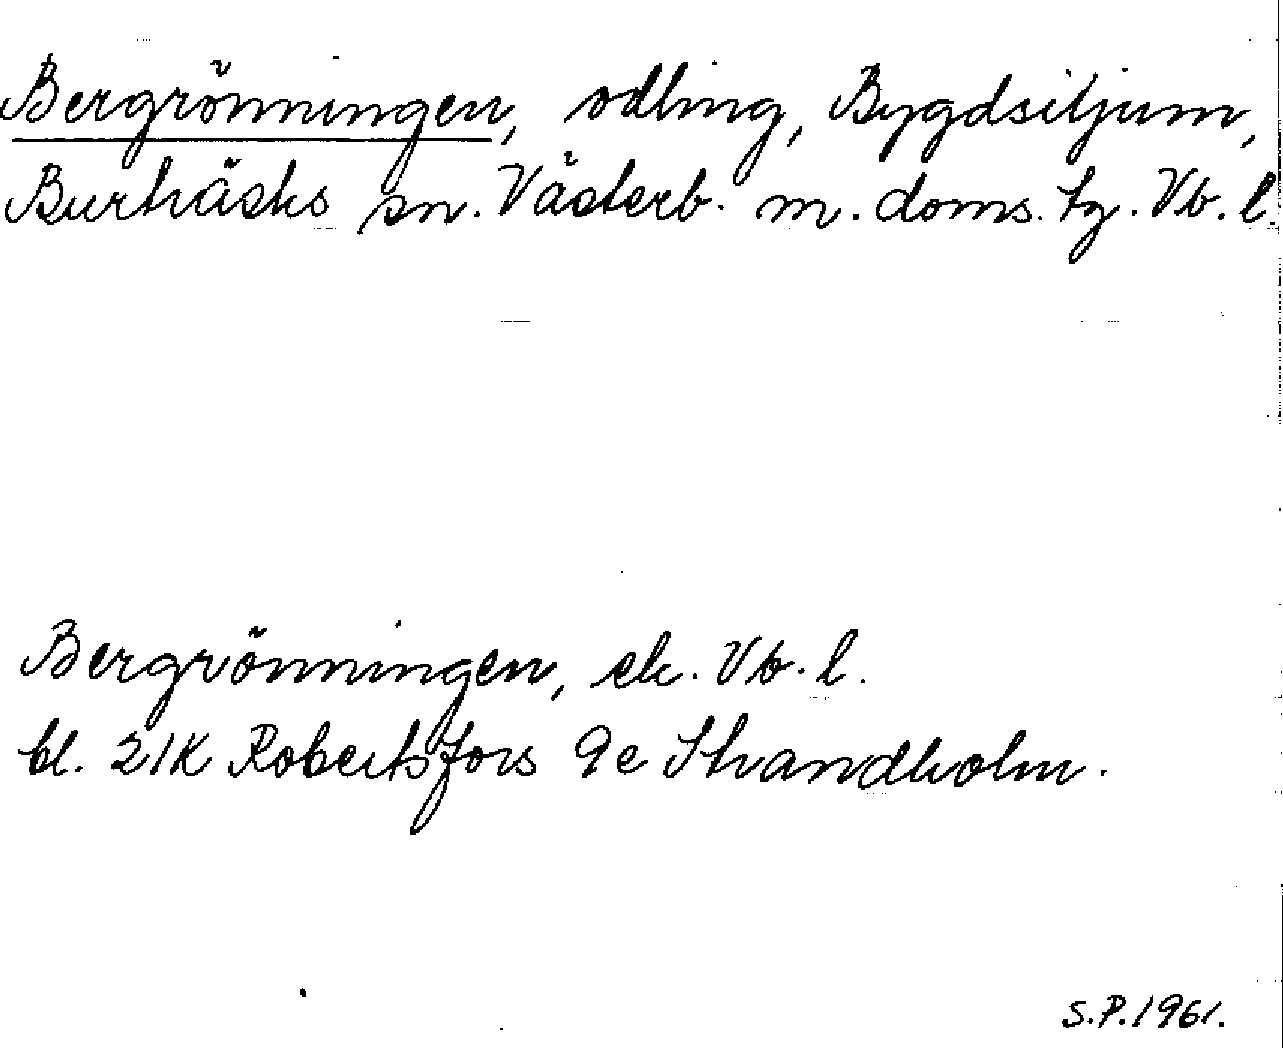 Bergrönningen, odling, Bygdsiljum,
Burträsks sn. Västerb. m. doms. tg. Vb. l.
Bergrönningen, ek. Vb. l.
bl. 21K Robertsfors 9e Strandholm.
S.P. 1961.